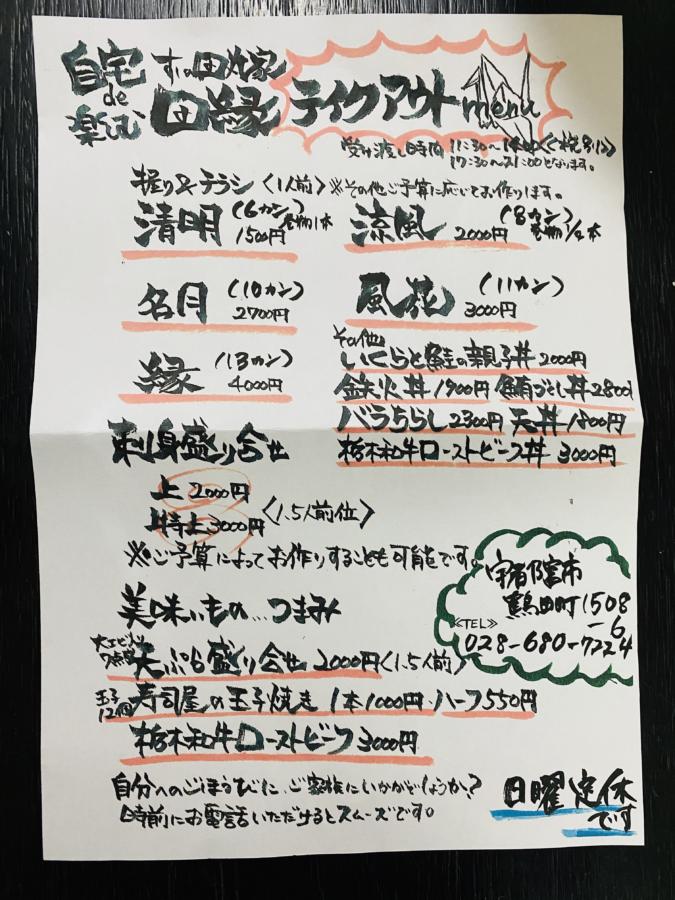 自宅
de
楽しむ
すし田久家
田縁
テイクアウト menu
受け渡し時間 11:30〜14:00 〈税別〉
17:30〜21:00となります。
握り&チラシ〈1人前〉※その他ご予算に応じてお作ります。
清明 (6カン) 巻物1本
1500円
涼風 (8カン) 巻物1/2本
2000円
名月 (10カン)
2700円
風花 (11カン)
3000円
縁 (13カン)
4000円
その他
いくらと鮭の親子丼 2000円
鉄火丼 1900円 鮪づくし丼 2800
バラちらし 2300円 天丼 1800円
栃木和牛ローストビーフ丼 3000円
刺身盛り合せ
上 2000円
特上 3000円 〈1.5人前位〉
※ご予算によってお作りすることも可能です。
美味いもの…つまみ
大エビ入り
7点盛 天ぷら盛り合せ 2000円〈1.5人前〉
玉子
12個 寿司屋の玉子焼き 1本1000円・ハーフ550円
栃木和牛ローストビーフ 3000円
宇都宮市
鶴田町1508
-6
≪TEL≫
028-680-7224
自分へのごほうびに、ご家族にいかがでしょうか?
時前にお電話いただけるとスムーズです。
日曜定休
です